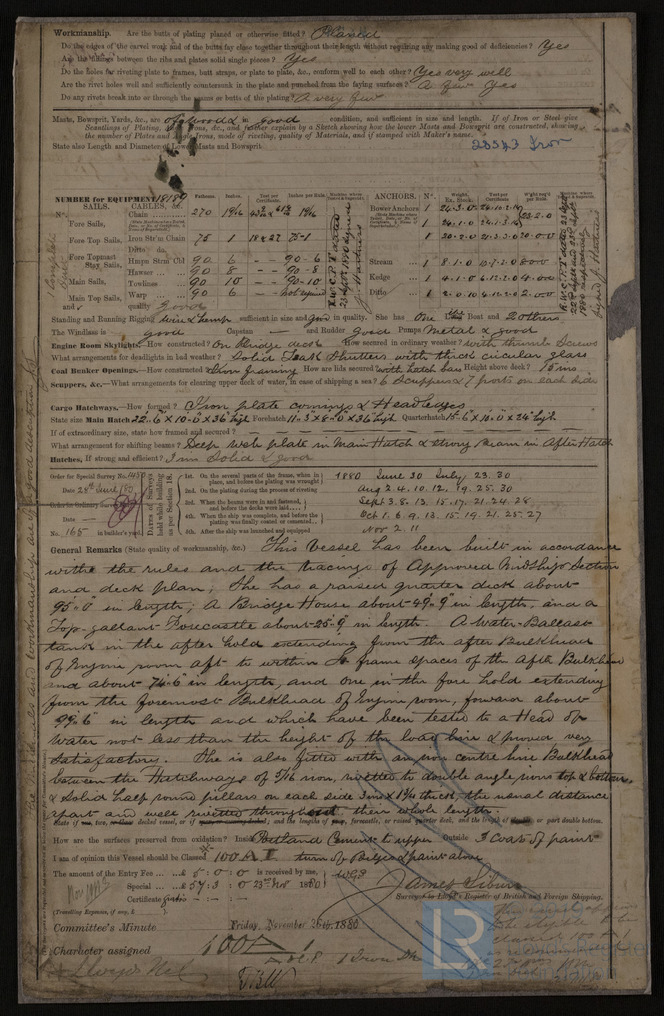 Workmanship. Are the butts of plating planed or otherwise fitted? Planed
Do the edges of the carvel work and of the butts lay close together throughout their length without requiring any making good of deficiencies? Yes
Are the fillings between the ribs and plates solid single pieces? Yes
Do the holes for riveting plate to frames, butt straps, or plate to plate, &c., conform well to each other? Yes very well
Are the rivet holes well and sufficiently countersunk in the plate and punched from the faying surfaces? Yes
Do any rivets break into or through the seams or butts of the plating? A very few
Masts, Bowsprit, Yards, &c., are of wood & in good condition, and sufficient in size and length. If of Iron or Steel give
Scantlings of Plating, Angle Irons, &c., and further explain by a Sketch showing how the lower Masts and Bowsprit are constructed, showing
the number of Plates and Angle Irons, mode of riveting, quality of Materials, and if stamped with Maker's name.
State also Length and Diameter of Lower Masts and Bowsprit 23543 Iron
NUMBER for EQUIPMENT 18189
SAILS. CABLES, &c. Fathoms. Inches. Test per Certificate. Inches per Rule. ANCHORS. No. Weight. Ex. Stock. Test per Certificate
Chain 270 1 9/16 1 9/16 Bower Anchors 1 24.3.0
Fore Sails, 1 24.1.0
Fore Top Sails, Iron Str'm Chain 75 1 18 & 27 75-1 1 20.2.0
Fore Topmast Stay Sails, Hmpn Strm Cbl 90 6 - - 90-6 Stream 1 8.1.0
Hawser 90 8 - - 90-8 Kedge 1 4.1.0
Main Sails, Towlines 90 10 - - 90-10 Ditto 1 2.0.10
Main Top Sails, Warp 90 6 - - not required
and quality Good
Standing and Running Rigging wire & hemp sufficient in size and good in quality. She has One Life Boat and 2 others
The Windlass is good Capstan — and Rudder Good Pumps Metal & good
Engine Room Skylights.—How constructed? On Bridge deck How secured in ordinary weather? with thumb Screws
What arrangements for deadlights in bad weather? Solid Teak Shutters with thick circular glass
Coal Bunker Openings.—How constructed? Iron framing How are lids secured? with hatch bars Height above deck? 15 ins
Scuppers, &c.—What arrangements for clearing upper deck of water, in case of shipping a sea? 6 Scuppers & 7 ports on each side
Cargo Hatchways.—How formed? Iron plate comings & Headledges
State size Main Hatch 22.6 x 10.0 x 36 high Forehatch 11.3 x 8.0 x 36 high Quarterhatch 15.6 x 10.0 x 24 high
If of extraordinary size, state how framed and secured? —
What arrangement for shifting beams? Deep web plate in Main Hatch & strong Beam in After Hatch
Hatches, If strong and efficient? 3 ins Solid & good
Order for Special Survey No. 1450
Date 28th June 1880
Order for Ordinary Survey
Date —
No. 165 in builder's yard.
Dates of Surveys held while building as per Section 18.
1st. On the several parts of the frame, when in place, and before the plating was wrought 1880 June 30 July 23.30
2nd. On the plating during the process of riveting Aug 2.4.10.12.19.25.30
3rd. When the beams were in and fastened, and before the decks were laid Sept 3.8.13.15.17.21.24.28
4th. When the ship was complete, and before the plating was finally coated or cemented Oct 1.6.9.13.15.19.21.25.27
5th. After the ship was launched and equipped Nov 2.11
General Remarks (State quality of workmanship, &c.) This Vessel has been built in accordance
withe the rules and the tracings of Approved Midship Section
and deck plan; She has a raised quarter deck about
95.0" in length; A Bridge House about 49.9" in length, and a
Top-gallant Forecastle about 25.9" in length. A Water-Ballast
tank in the after hold extending from the after Bulkhead
of Engine room aft to within frame spaces of the After Bulkhead
and about 74.6" in length, and one in the fore hold extending
from the foremost Bulkhead of Engine room, forward about
99.6" in length and which have been tested to a Head of
Water not less than the height of the load line & proved very
Satisfactory. She is also fitted with an iron centre line Bulkhead
between the Hatchways of 5/16 iron, rivetted to double angle irons top & bottom,
& Solid half round pillars on each side 3 ins x 1 3/4 thick, the usual distance
apart and well rivetted throughout their whole length.
How are the surfaces preserved from oxidation? Inside Portland Cement to upper Outside 3 Coats of paint
I am of opinion this Vessel should be Classed 100 A 1 turn of Bilges & paint above
The amount of the Entry Fee £ 5 : 0 : 0 is received by me,
Special £ 57 : 3 : 0 23rd Nov 1880
Certificate gratis
(Travelling Expenses, if any, £ )
Surveyor to Lloyd's Register of British and Foreign Shipping.
Committee's Minute Friday, November 26th, 1880
Character assigned 100 A 1
LR
Lloyd's Register
Foundation